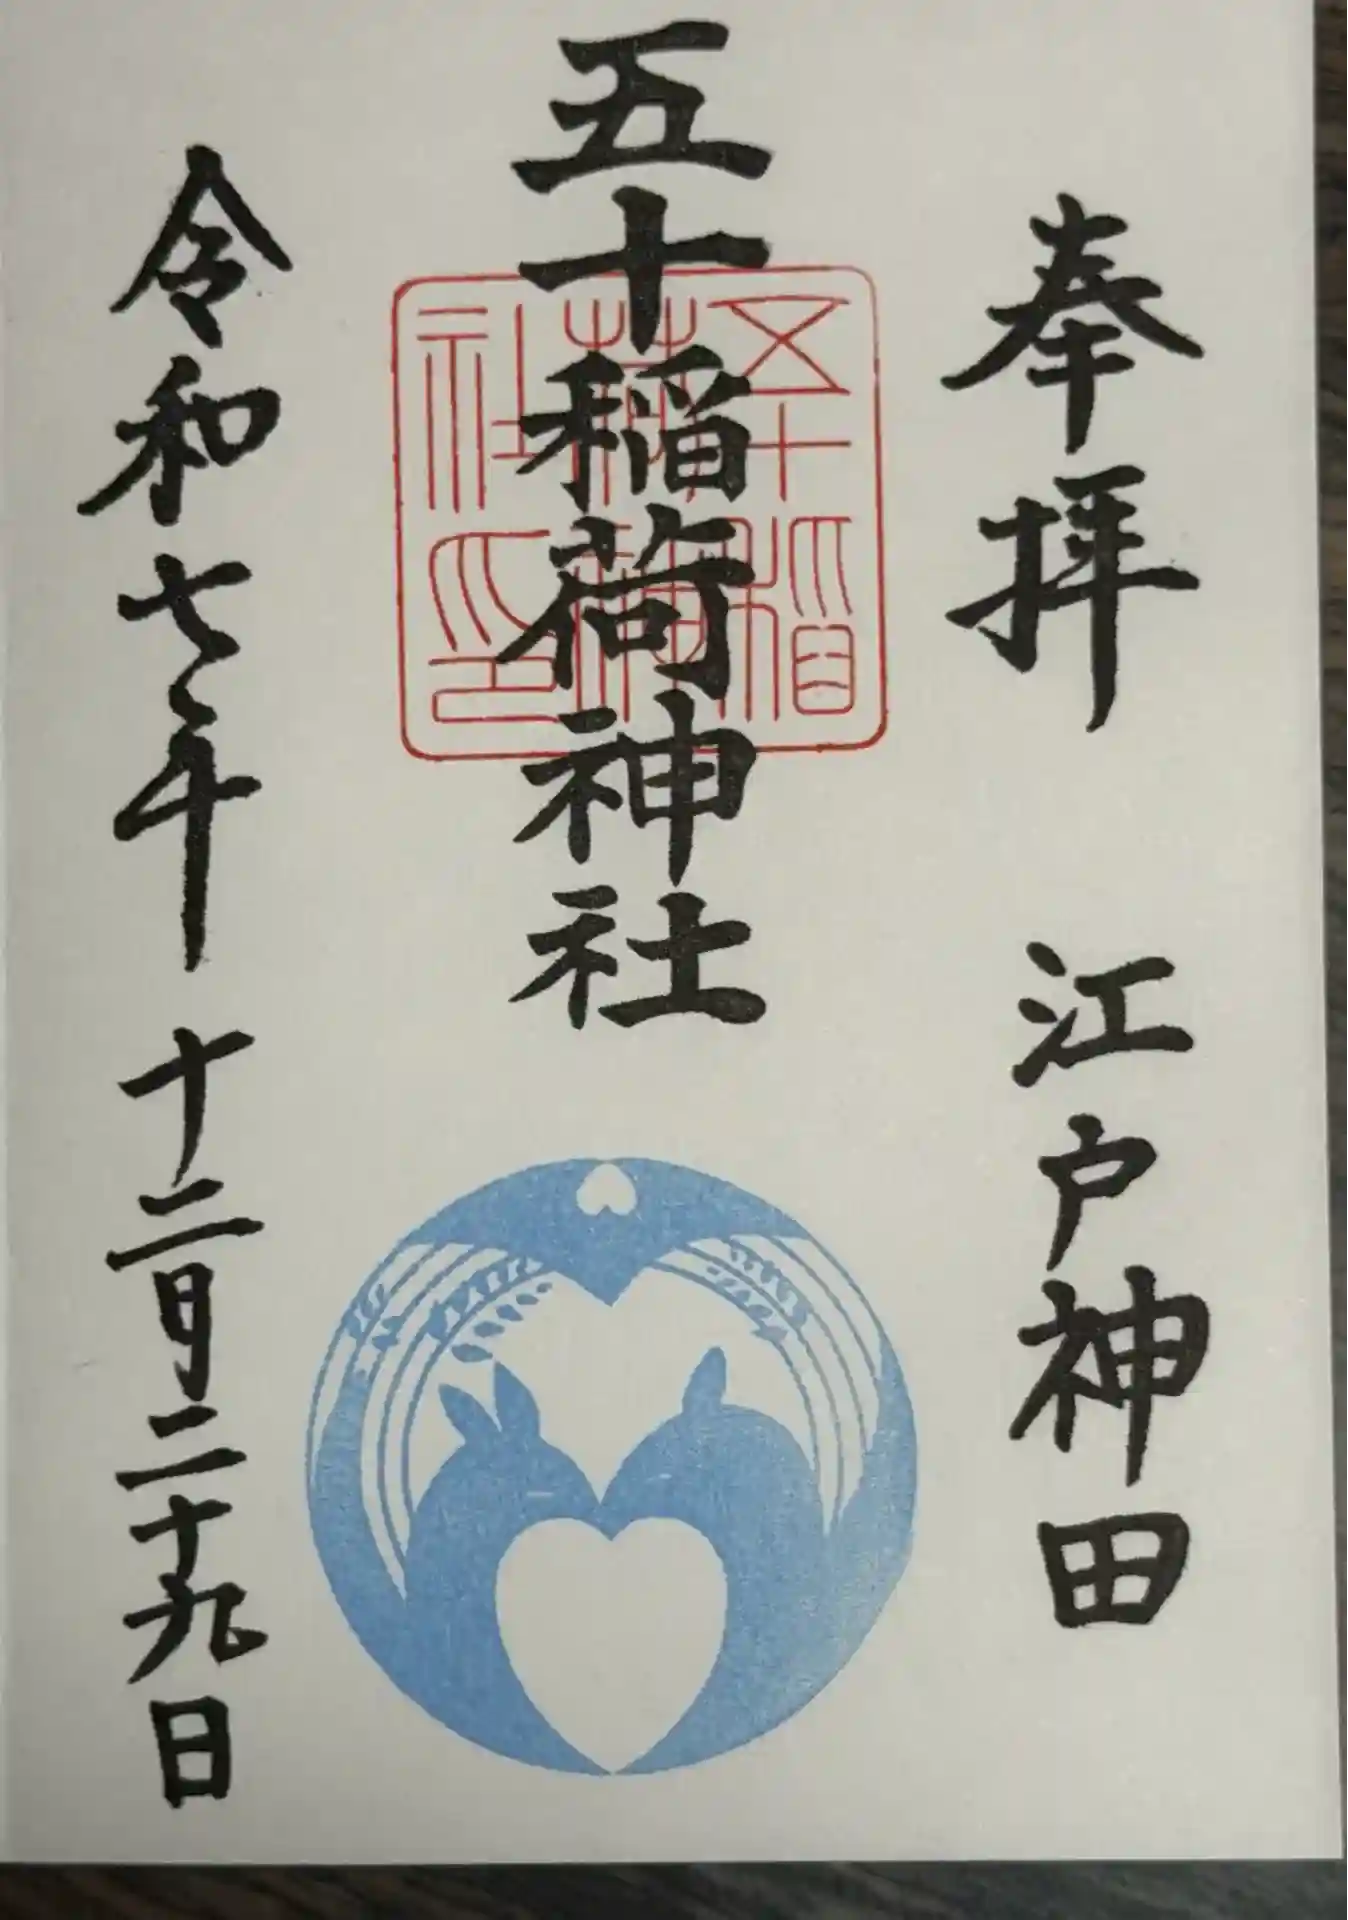 奉拝 江戸神田
五十稲荷神社
五十稲荷神社印
令和七年 十二月二十九日